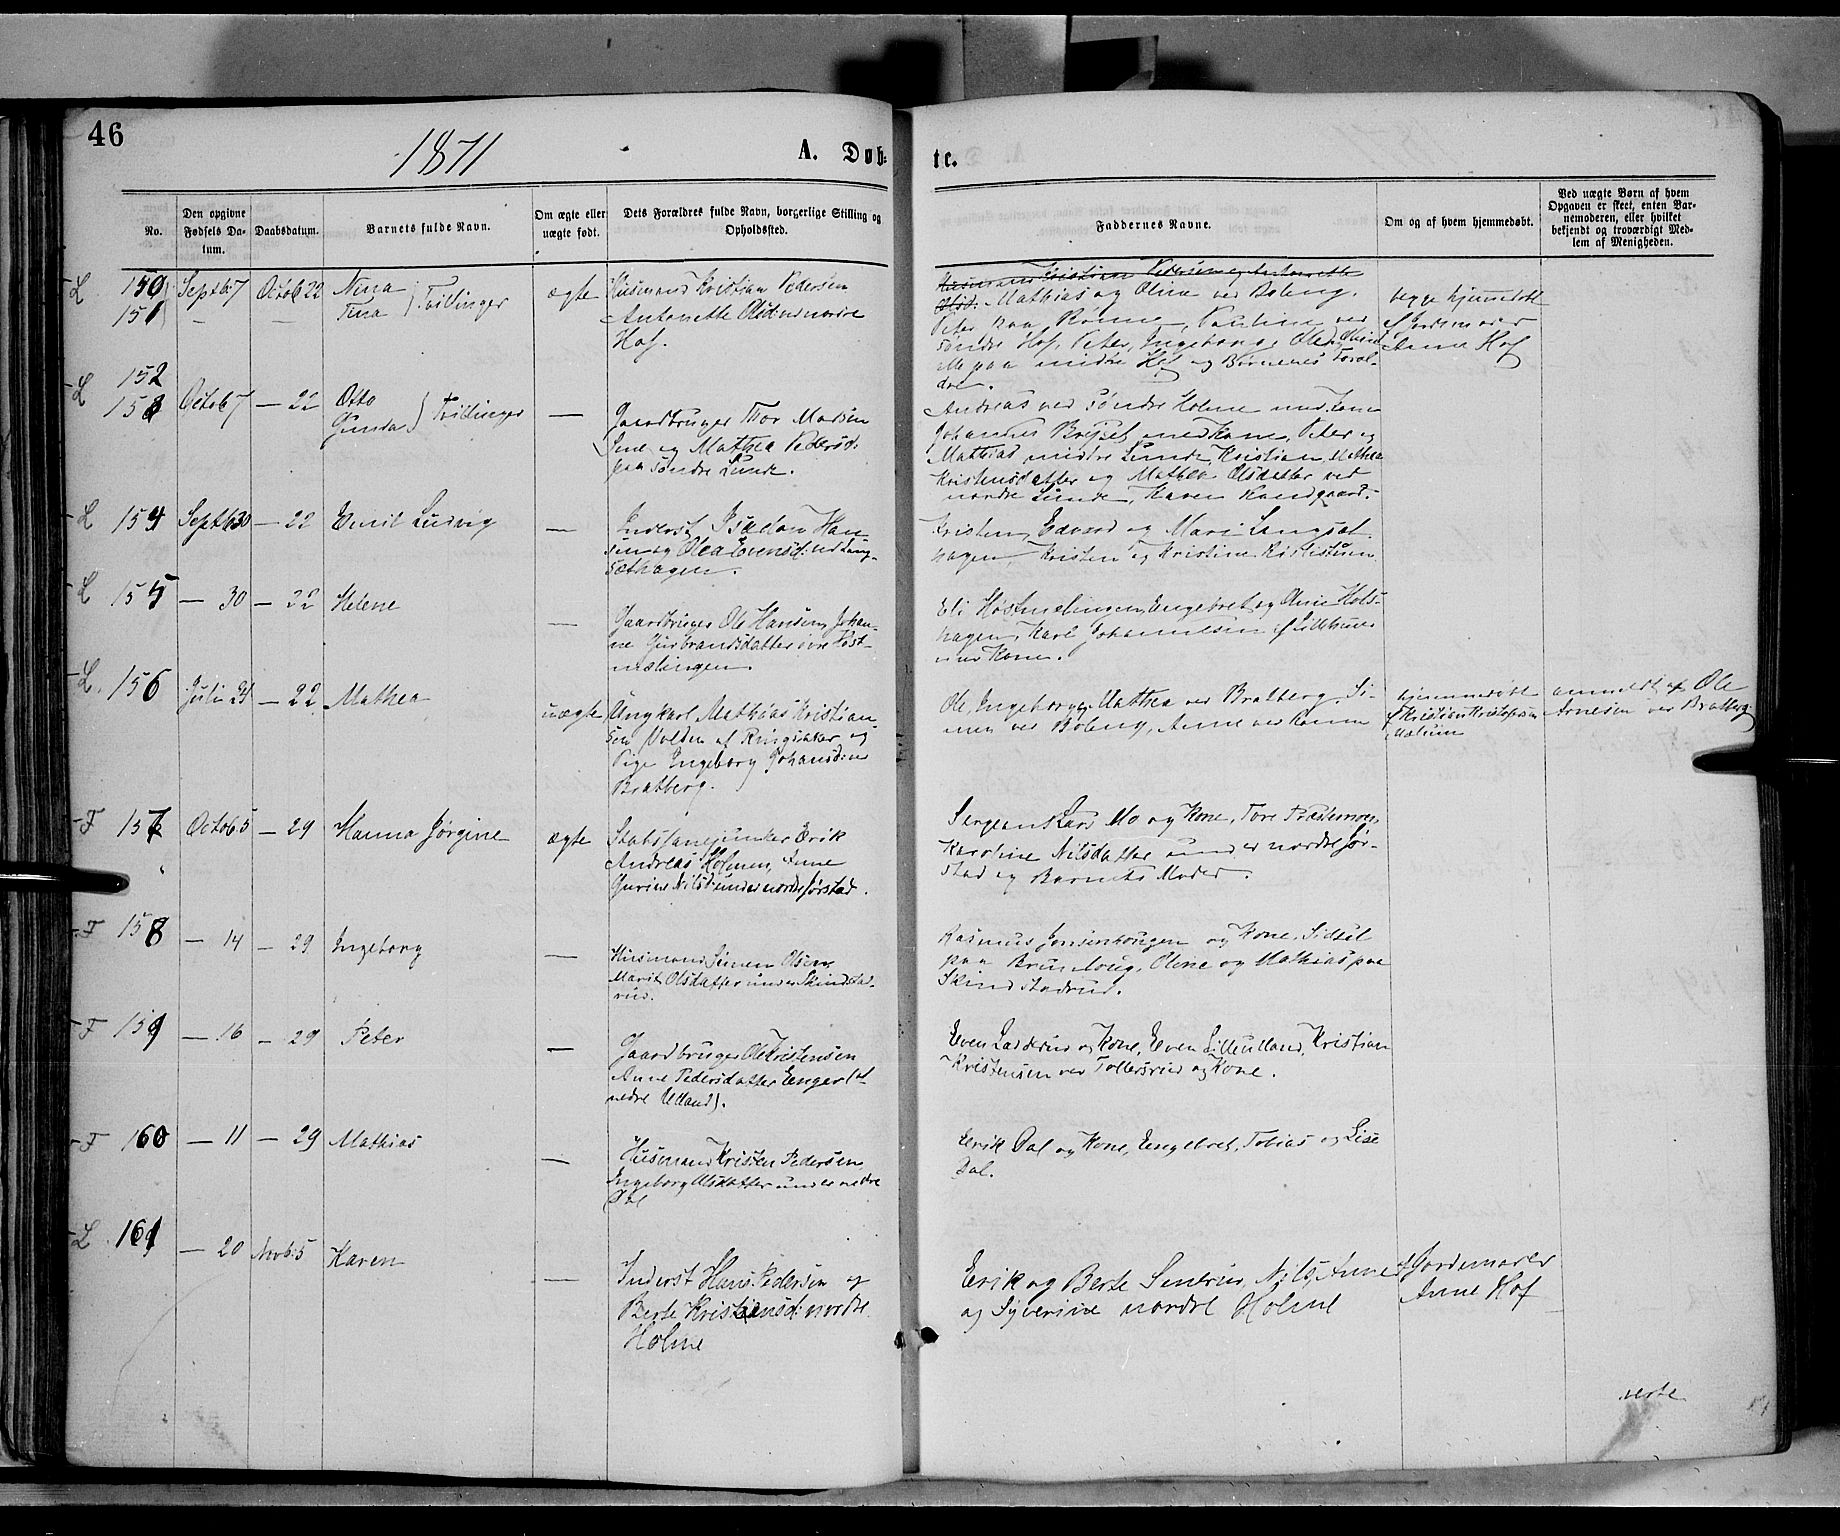 46
1871
A. Døb-
te.
No.
Den opgivne Fødsels Datum.
Daabsdatum.
Barnets fulde Navn.
Om ægte eller uægte født.
Dets Forældres fulde Navn, borgerlige Stilling og Opholdssted.
Faddernes Navne.
Om og af hvem hjemmedøbt.
Ved uægte Børn af hvem Opgaven er skeet, enten Barnemoderen, eller hvilket bekjendt og troværdigt Medlem af Menigheden.
L 150 Septb 7 Octob 22 Nina } Tvillinger ægte Husmand Kristian Pedersen
151 — — Tina
Antonette Olsd: nordre
Hof.
Husmand Kristian Pedersen og Antonette
Olsd: Mathias og Oline ved Boleng,
Peter paa Ronne, Pauline ved
søndre Hof, Peter, Ingeborg, Ole
Alle paa midtre Hof og Børnenes Foræl-
dre.
begge hjemmedøbt
af Jordemoder
Anne Hof
L 152 Octob 7 — 22 Otto } Tvillinger —
153 Gunda
Gaardbruger Thor Madsen
Lune og Mathea Pedersd:
paa søndre Lunde.
Andreas ved søndre Holme med Kone
Johannes Brejset med Kone, Peter og
Mathias midtre Lunde, Kristian, Mathea
Kristensdatter og Mathea Olsdatter ved
nordre Lunde, Karen
L 154 Septb 30 — 22 Emil Ludvig —
Inderst Isaksen Han-
sen og Olea Evensd: ved Lang-
sæthagen.
Kristen, Edvard og Mari Langsæt
hagen, Kristen og Kristine
L 155 — 30 — 22 Helene —
Gaardbruger Ole Hansen, Johan-
ne Gudbrandsdatter øvre Høst-
mælingen.
Eli Høstmelingen, Engebret og Oline Hols-
hagen, Karl Johannesen
med Kone.
L. 156 Juli 24 — 22 Mathea uægte
Ungkarl Mathias Kristian-
sen Volden af Ringsaker og
Pige Ingeborg Johansd: ved
Bratberg.
Ole, Ingeborg og Mathea ved Bratberg, Si-
men ved Boleng, Anne ved Ronne
hjemmedøbt
af Kristian Kristofersen
Mælum
anmeldt af Ole
Arnesen ved Bratberg
F 157 Octob 5 — 29 Hanna Jørgine ægte
Stabsfanejunker Erik
Andreas Holmen, Anne
Gurine Nilsd: under nordre Jørstad.
Sergeant Lars Mo og Kone, Tore Præstemoen,
Karoline Nilsdatter under nordre Jør-
stad og Barnets Moder.
F 158 — 14 — 29 Ingeborg —
Husmand Simen Olsen,
Marit Olsdatter under Skindstad-
rud.
Rasmus Jonsenhougen og Kone, Sidsel
paa Brunloug, Oline og Mathias paa
Skindstadrud.
F 159 — 16 — 29 Peter —
Gaardbruger Ole Kristensen
Anne Pedersdatter Enger (
nedre Ulland).
Even Ladderud og Kone, Even Lilleulland, Kristian
Kristensen ved Tollersrud og Kone.
F 160 — 11 — 29 Mathias —
Husmand Kristen Pedersen
Ingeborg Olsdatter under nedre
Dal
Erik Dal og Kone, Engebret, Tobias og Lise
Dal.
L 161 — 20 Novb: 5 Karen —
Inderst Hans Pedersen og
Berte Kristiansd: nordre
Holme
Erik og Berte Smerud, Nils, Anne
og Syverine nordre Holme
af Jordemoder
Anne Hof
verte